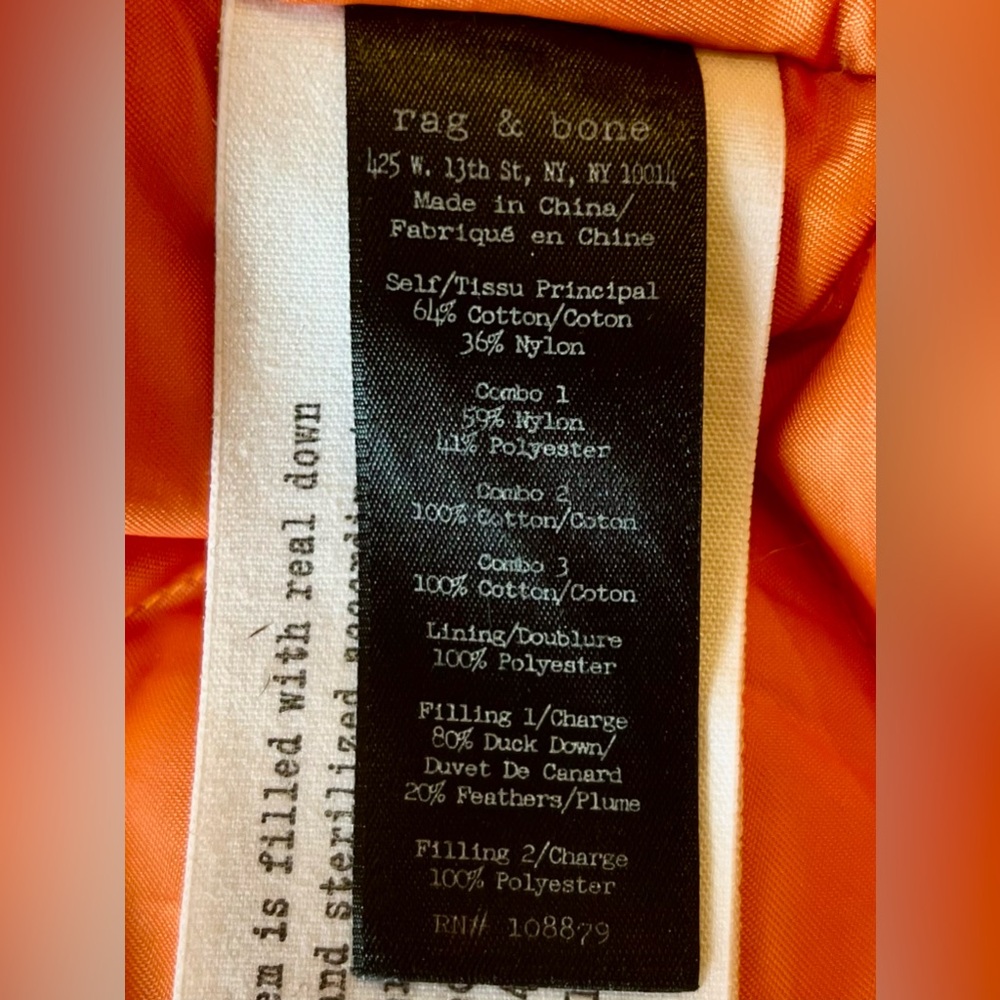 rag & bone
425 W. 13th St, NY, NY 10014
Made in China/
Fabriqué en Chine
Self/Tissu Principal
64% Cotton/Coton
36% Nylon
Combo 1
59% Nylon
41% Polyester
Combo 2
100% Cotton/Coton
Combo 3
100% Cotton/Coton
Lining/Doublure
100% Polyester
Filling 1/Charge
80% Duck Down/
Duvet De Canard
20% Feathers/Plume
Filling 2/Charge
100% Polyester
RN# 108879
em is filled with real down
and sterilized